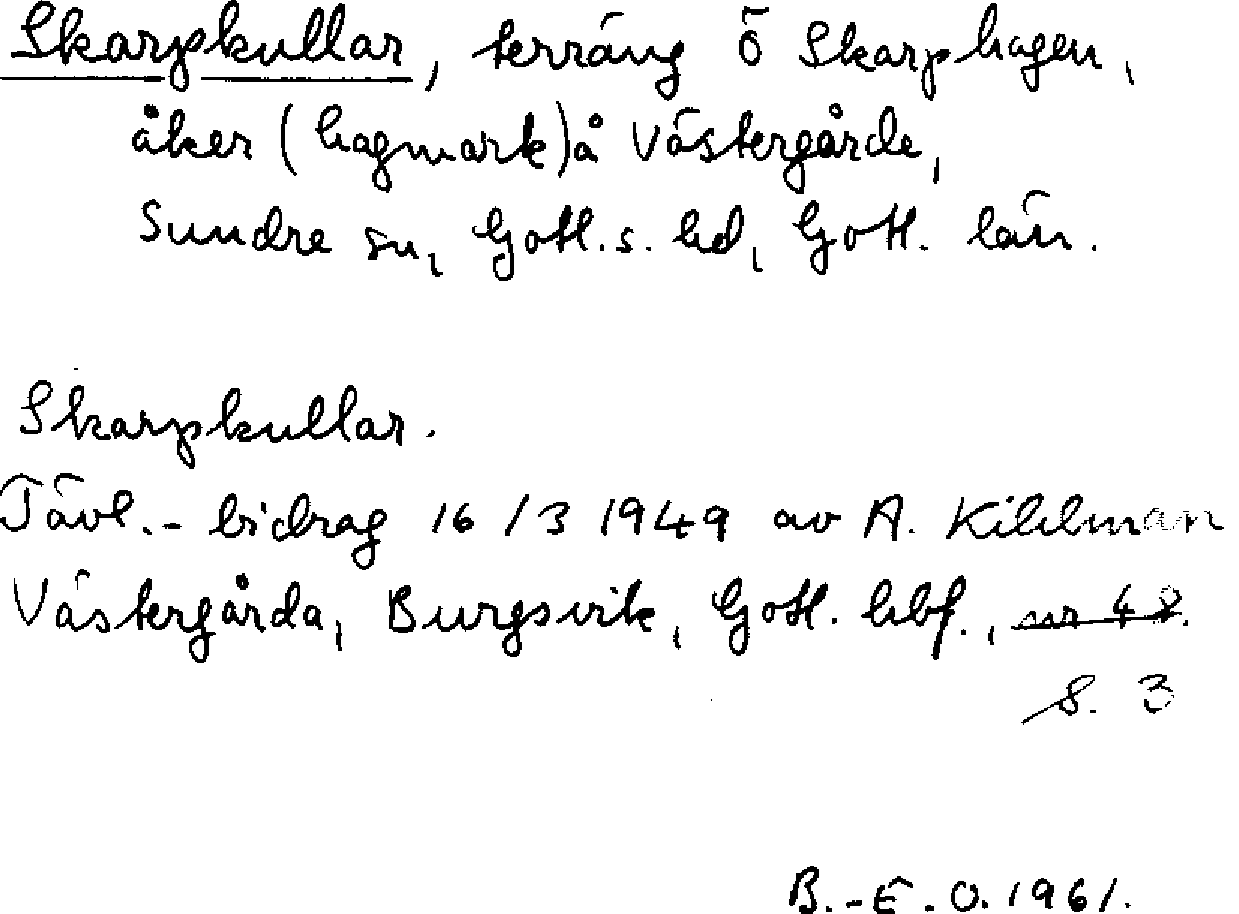 Skarpkullar, terräng ö Skarphagen,
åker (hagmark) å Västergårde,
Sundre sn, Gotl. s. hd, Gotl. län.
Skarpkullar.
Tävl.-bidrag 16/3 1949 av A. Kihlman
Västergårda, Burgsvik, Gotl. hbf., nr 48.
s. 3
B.-E. O. 1961.